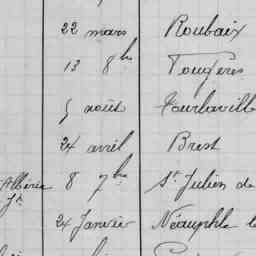 22 mars Roubaix
13 8bre Fougères
5 août Tourlaville
24 avril Brest
8 7bre St Julien de
24 Janvier Néauphle le